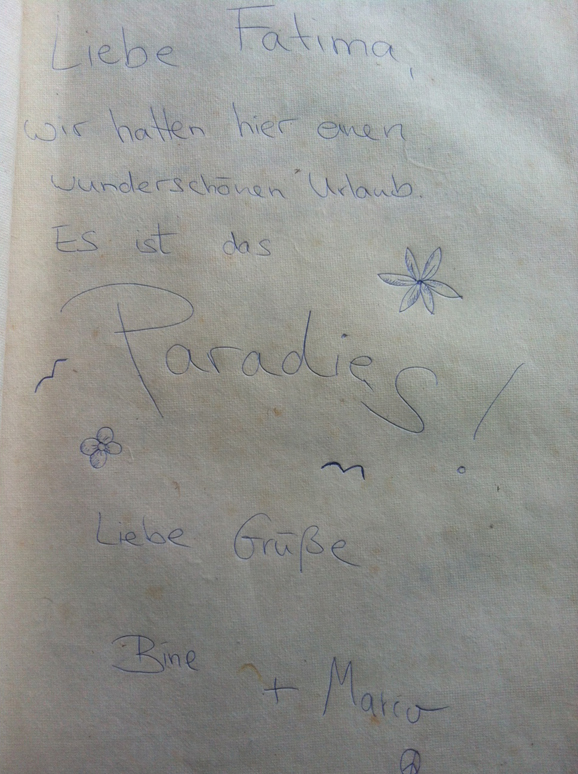 Liebe Fatima,
wir hatten hier einen
wunderschönen Urlaub.
ES ist das
Paradies!
Liebe Grüße
Bine
+ Marco